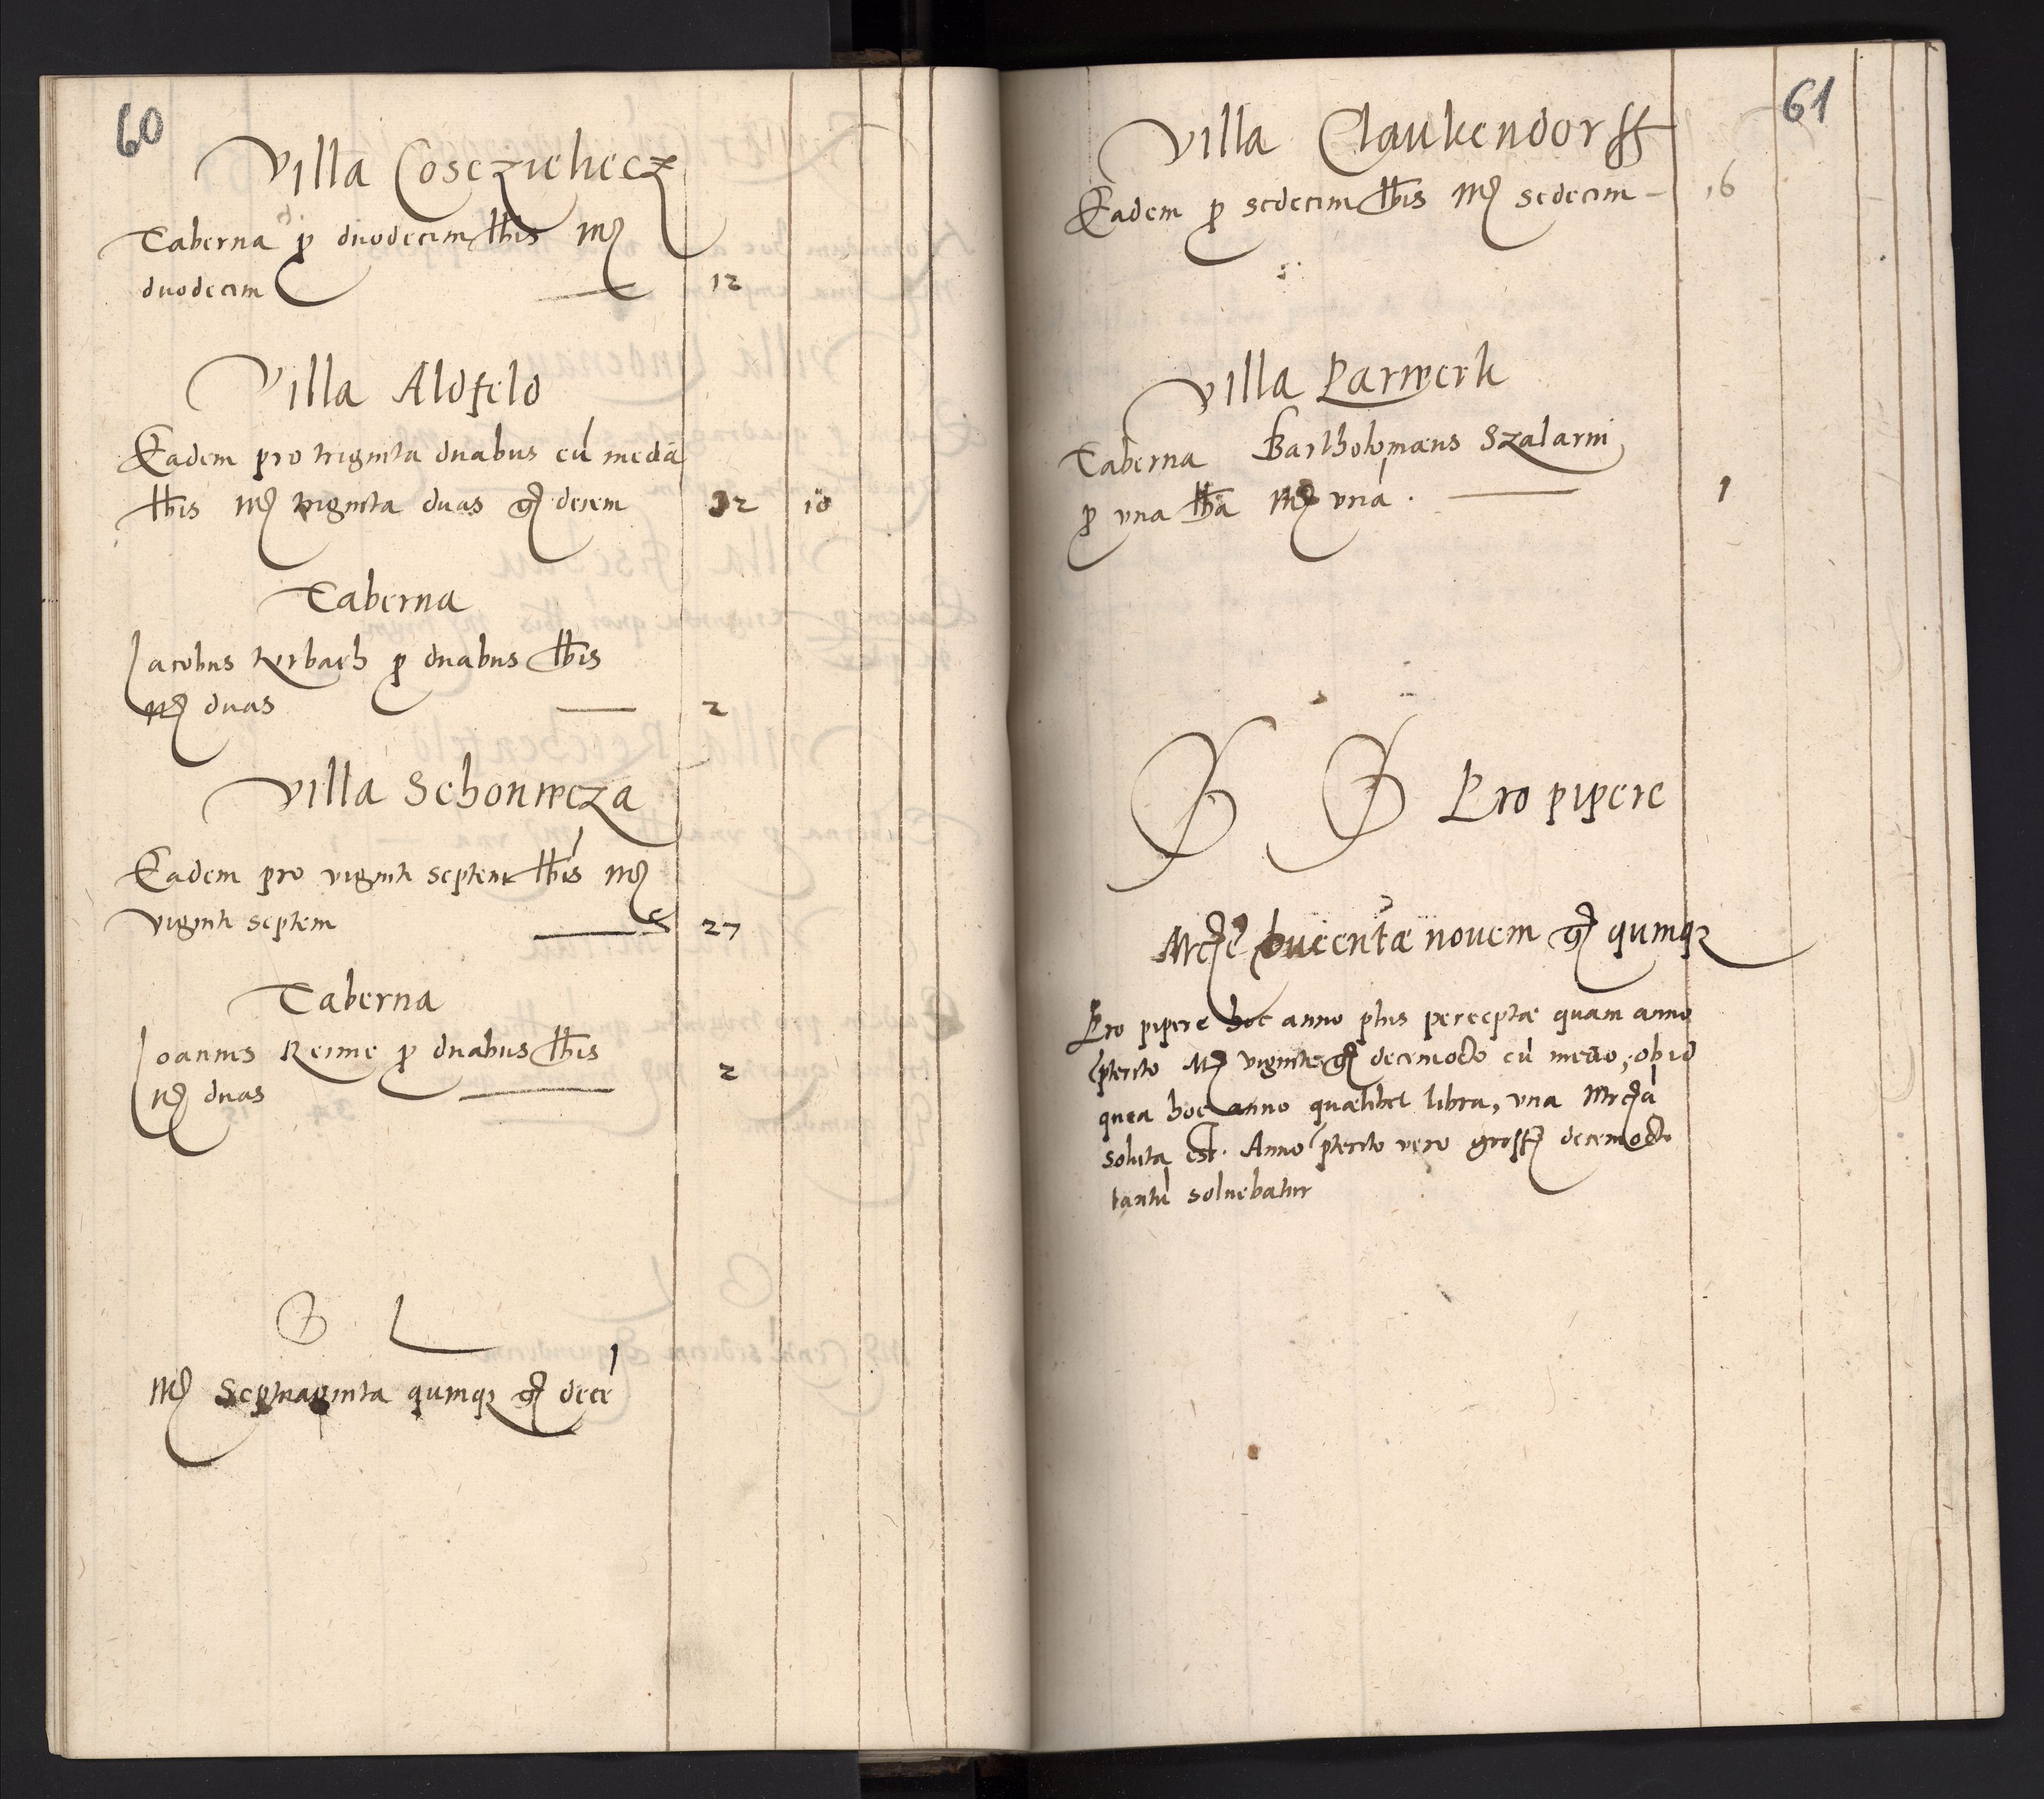 60
Villa Cosczielecz
Taberna p duodecim lbis Mr
duodecim 12
Villa Aldfeld
Eadem pro triginta duabus cū media
lbis Mr triginta duas gr decem 32 10
Taberna
Jacobus Kirbach p duabus lbis
Mr duas 2
Villa Schonweza
Eadem pro viginti septem lbis Mr
viginti septem 27
Taberna
Joannes Reime p duabus lbis
Mr duas 2
S L
Mr Septuaginta quinqz gr decē
61
Villa Claukendorff
Eadem p sedecim lbis Mr sedecim 16
Villa Parwerk
Taberna Bartholomæus Szalarni
p vna lba Mr vnā 1
Pro pipere
Mrcæ ducentæ novem gr quinqz
Pro pipere hoc anno plus perceptæ quam anno
pterito Mr viginti gr decemocto cū medio, ob id
quia hoc anno quælibet libra, vna Mrcā
soluta est. Anno pterito vero gross decemocto
tantū soluebatur